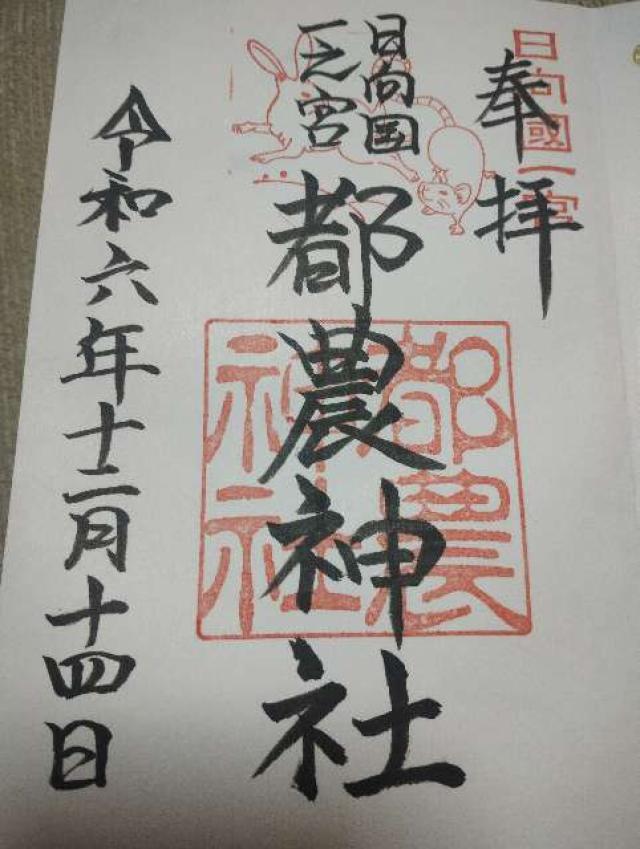 奉拝
日向國一宮
日向国
一之宮
都農神社
都農神社
令和六年十二月十四日